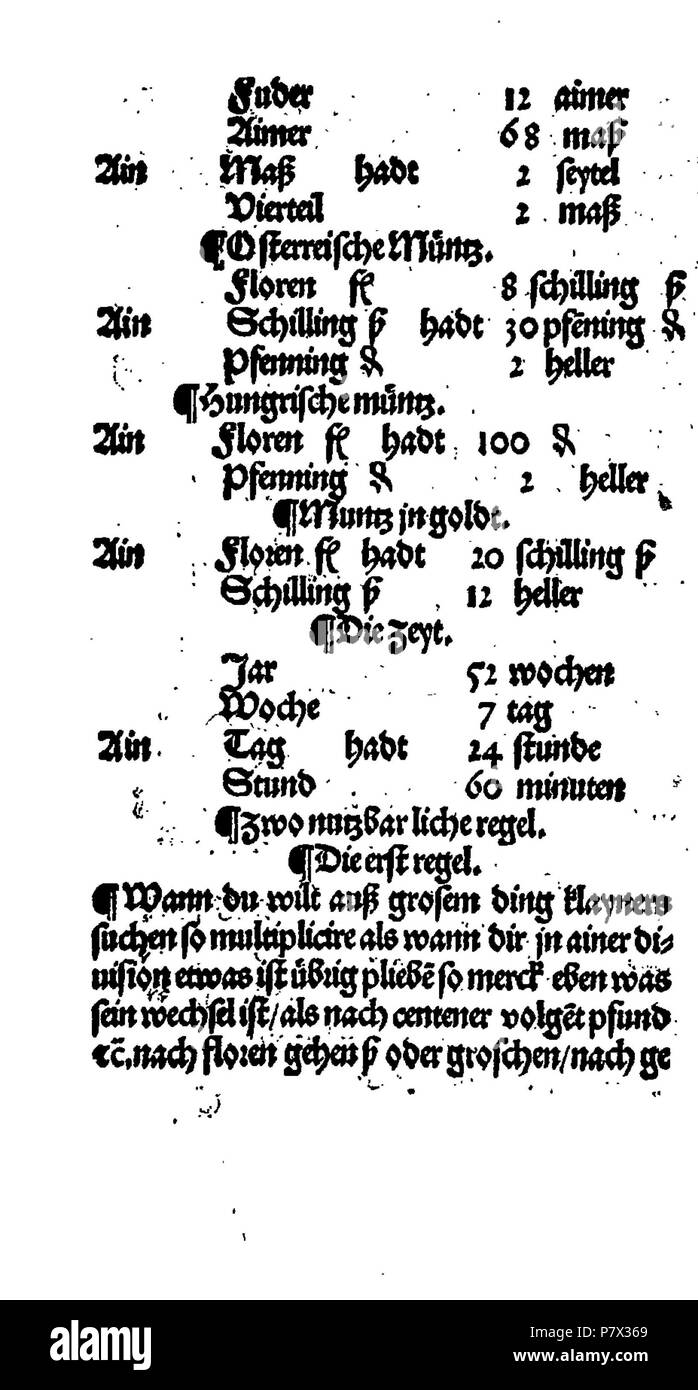 Fuder 12 aimer
Aimer 68 maß
Ain Maß hadt 2 seytel
Vierteil 2 maß
¶Osterreische Müntz.
Floren fl 8 schilling ß
Ain Schilling ß hadt 30 pfēning ₰
Pfenning ₰ 2 heller
¶Hungrische müntz.
Ain Floren fl hadt 100 ₰
Pfenning ₰ 2 heller
¶Muntz jn goldt.
Ain Floren fl hadt 20 schilling ß
Schilling ß 12 heller
¶Die zeyt.
Jar 52 wochen
Woche 7 tag
Ain Tag hadt 24 stunde
Stund 60 minuten
¶Zwo nutzbarliche regel.
¶Die erst regel.
¶Wann du wilt auß grosem ding klayners
suchen so multiplicire als wann dir jn ainer di⸗
uision etwas ist übrig pliebē so merck eben was
sein wechsel ist/als nach centener volgēt pfund
ꝛc̄.nach floren gehen ß oder groschen/nach ge
alamy
Image ID: P7X369
www.alamy.com